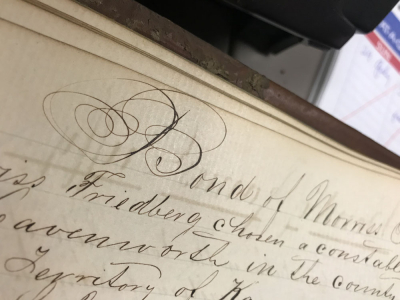 Bond of Morris
Friedberg chosen a constable
eavenworth in the county
Territory of Ka